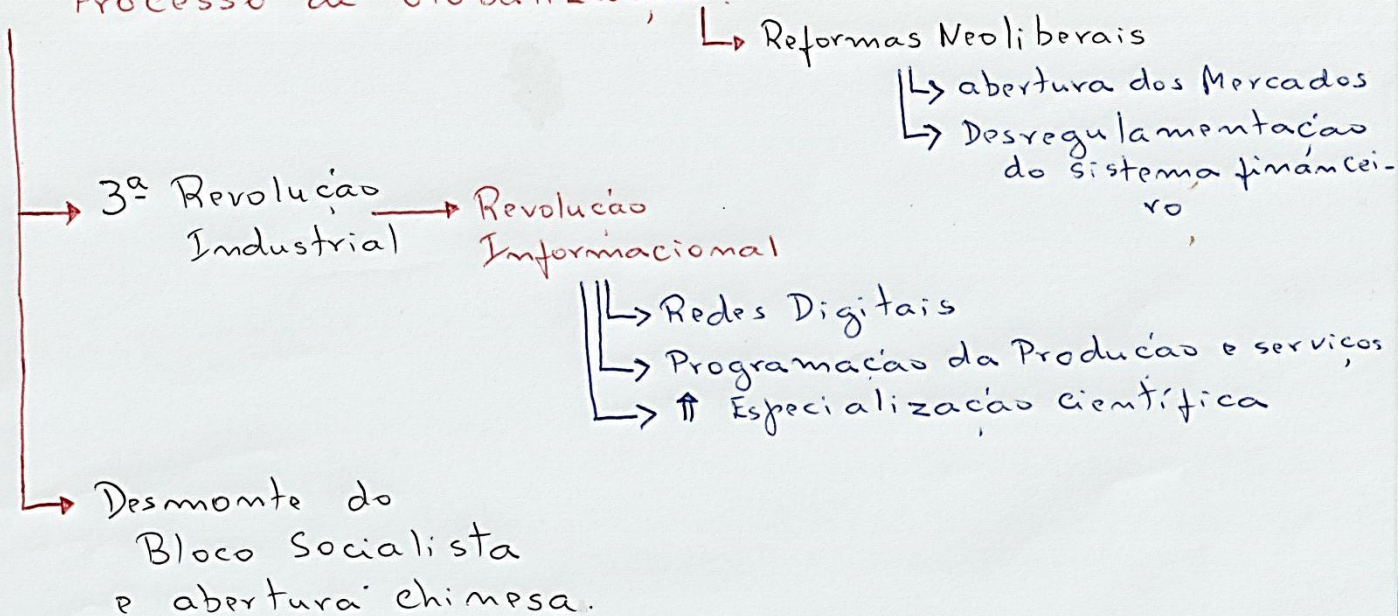 Processo de
Reformas Neoliberais
abertura dos Mercados
Desregulamentação
do sistema financei-
ro
3ª Revolução
Industrial
Revolução
Informacional
Redes Digitais
Programação da Produção e serviços
⇑ Especialização científica
Desmonte do
Bloco Socialista
e abertura chinesa.